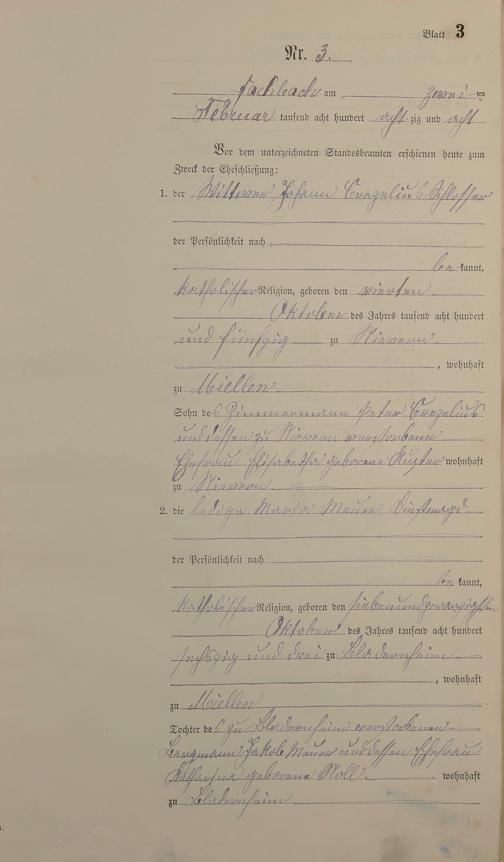 Blatt 3
Nr. 3.
Fachbach am zwei ten
Februar tausend acht hundert acht zig und acht
Vor dem unterzeichneten Standesbeamten erschienen heute zum
Zweck der Eheschließung:
1. der Wittwer Johann Crezelius Schlosser
der Persönlichkeit nach
be kannt,
katholischer Religion, geboren den vierten
Oktober des Jahres tausend acht hundert
und fünfzig zu Nievern
, wohnhaft
zu Miellen
Sohn des Zimmermann Peter Crezelius
und dessen zu Nievern verstorbene
Ehefrau Elisabetha geborene wohnhaft
zu Nievern
2. die ledige Maria Meuer Dienstmagd
der Persönlichkeit nach
be kannt,
katholischer Religion, geboren den siebenundzwanzigsten
Oktober des Jahres tausend acht hundert
sechszig und drei zu Bladernheim
, wohnhaft
zu Miellen
Tochter des zu Bladernheim verstorbenen
Bergmann Jakob Meuer und dessen Ehefrau
geborene Noll wohnhaft
zu Bladernheim